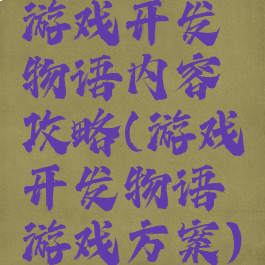 游戏开发
物语内容
攻略(游戏
开发物语
游戏方案)